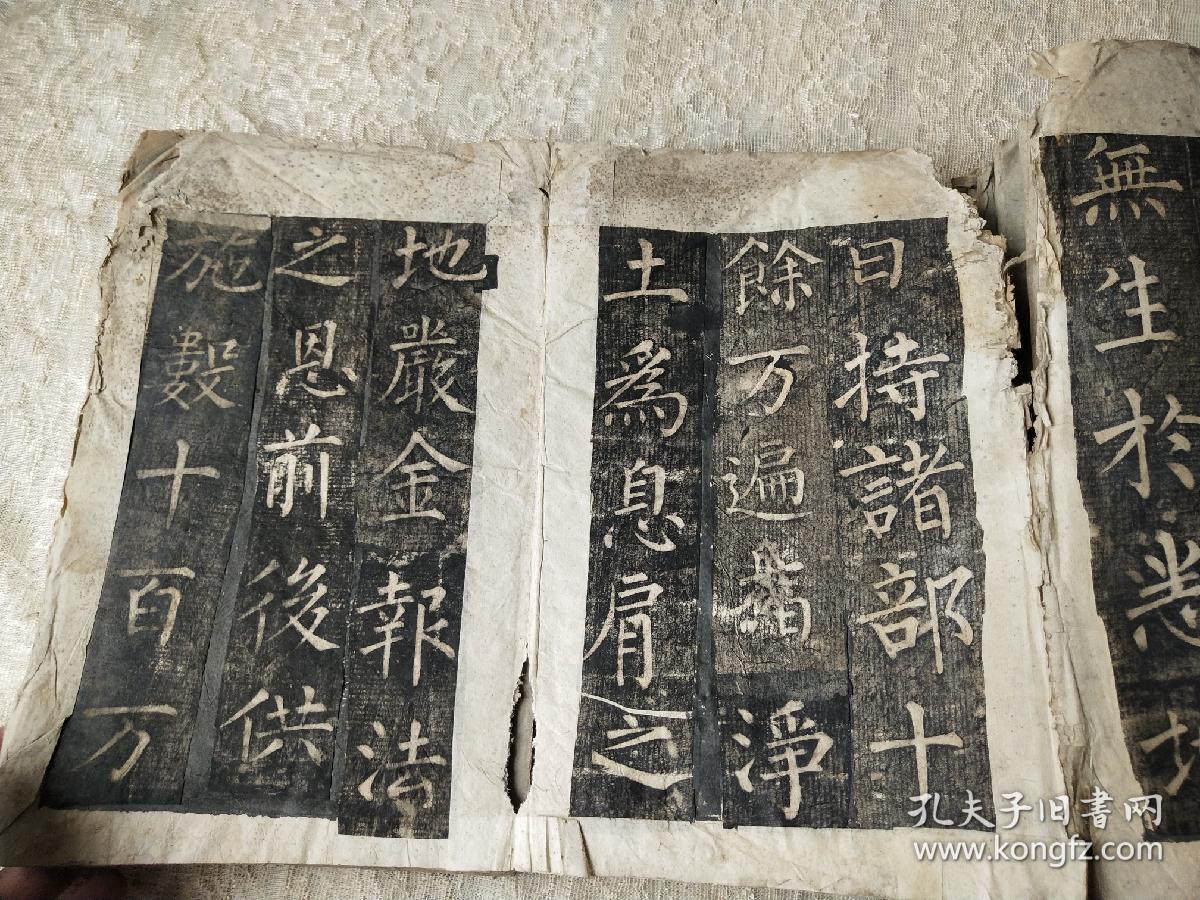 無生於悲
日持諸部十
餘万遍指淨
土為息肩之
地嚴金報法
之恩前後供
施數十百万
孔夫子旧書网
www.kongfz.com